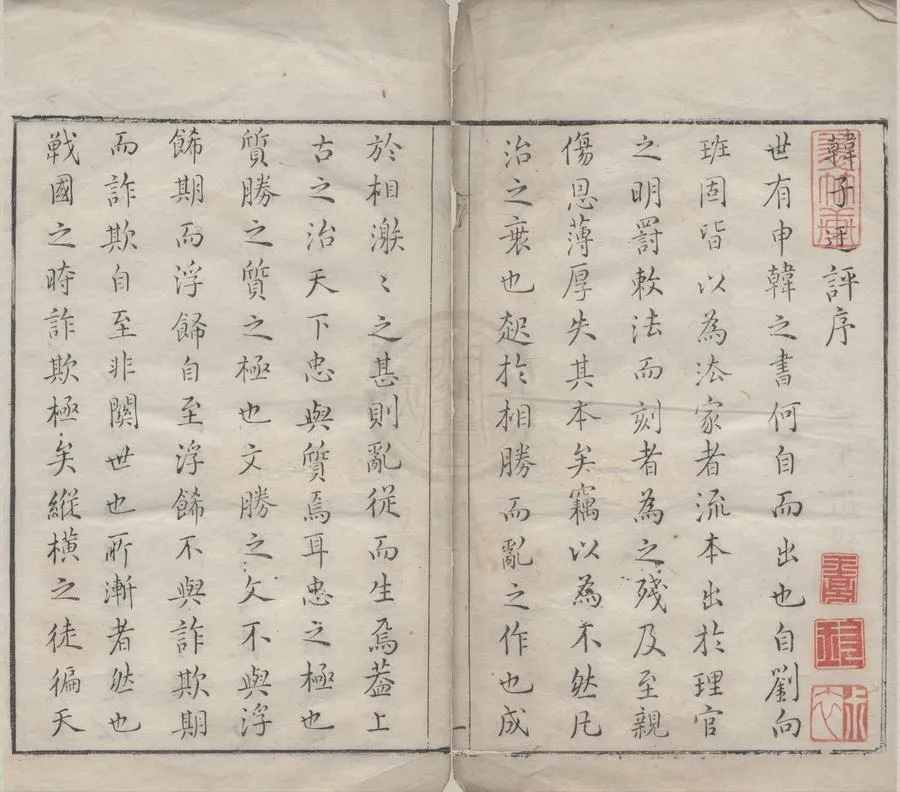 韓子迂評序
世有申韓之書何自而出也自劉向
班固皆以為法家者流本出於理官
之明罸敕法而刻者為之殘及至親
傷恩薄厚失其本矣竊以為不然凡
治之衰也起於相勝而亂之作也成
於相激〻之甚則亂從而生焉葢上
古之治天下忠與質焉耳忠之極也
質勝之質之極也文勝之文不與浮
餙期而浮餙自至浮餙不與詐欺期
而詐欺自至非関世也所漸者然也
戰國之時詐欺極矣縱橫之徒徧天
一